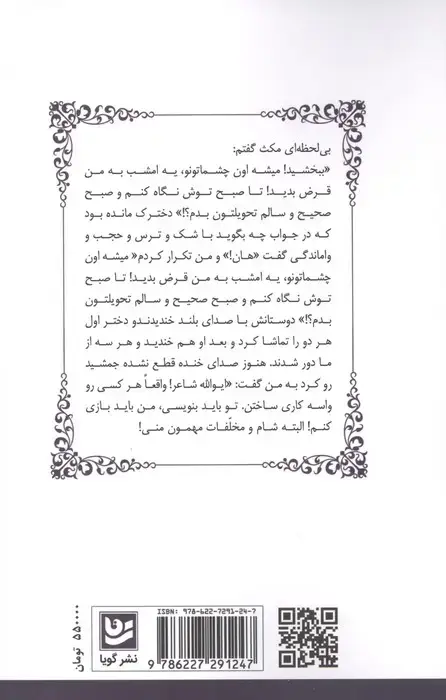 بی‌لحظه‌ای مکث گفتم:
«ببخشید! میشه اون چشماتونو، یه امشب به من
قرض بدید! تا صبح توش نگاه کنم و صبح
صحیح و سالم تحویلتون بدم؟!» دخترک مانده بود
که در جواب چه بگوید با شک و ترس و حجب و
واماندگی گفت «هان!» و من تکرار کردم« میشه اون
چشماتونو، یه امشب به من قرض بدید! تا صبح
توش نگاه کنم و صبح صحیح و سالم تحویلتون
بدم؟!» دوستانش با صدای بلند خندیدندو دختر اول
هر دو را تماشا کرد و بعد او هم خندید و هر سه از
ما دور شدند. هنوز صدای خنده قطع نشده جمشید
رو کرد به من گفت: «ایوالله شاعر! واقعاً هر کسی رو
واسه کاری ساختن. تو باید بنویسی، من باید بازی
کنم! البته شام و مخلّفات مهمون منی!
ISBN: 978-622-7291-24-7
9 786227 291247
نشر گویا
۵۵۰۰۰۰ تومان